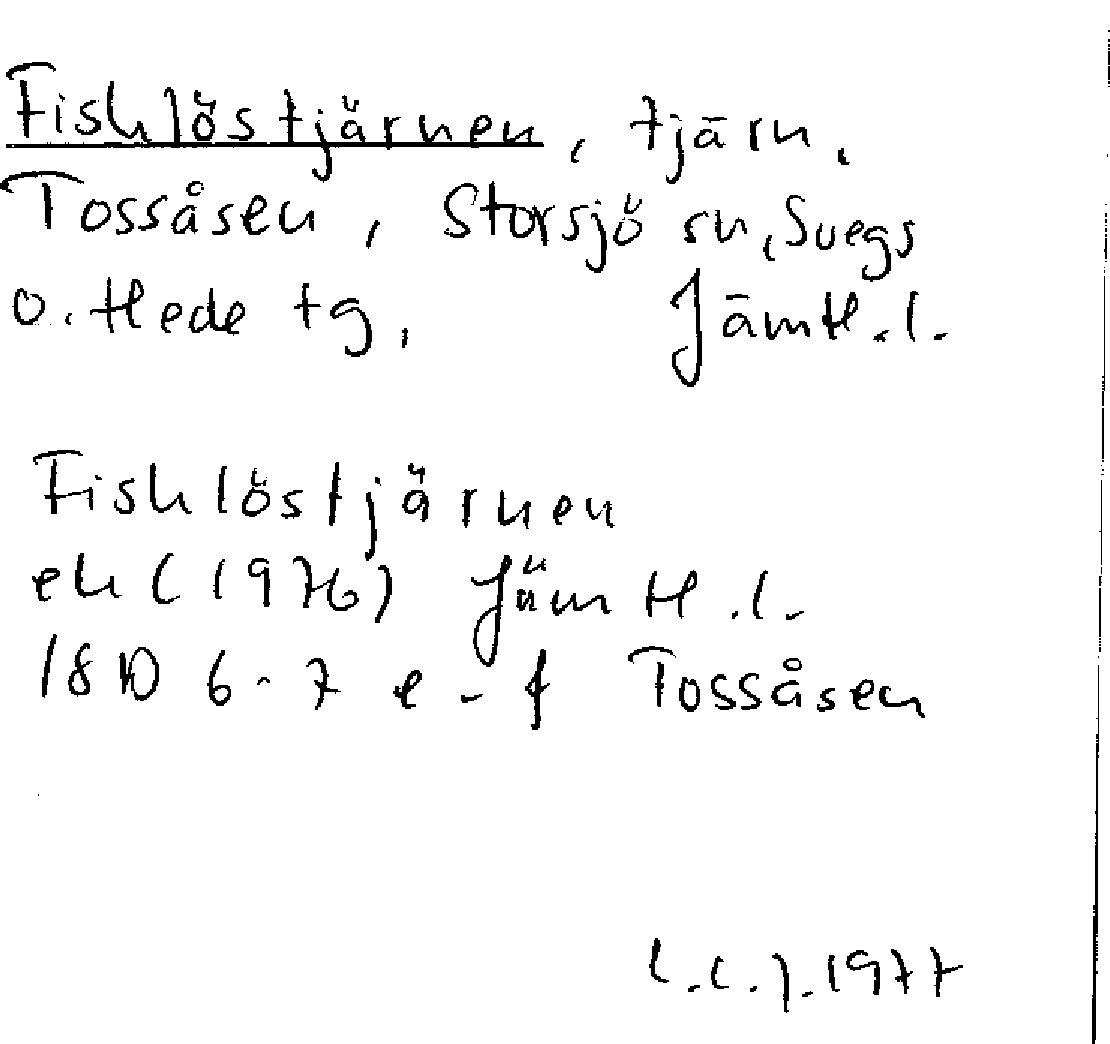 Fisklöstjärnen, tjärn,
Tossåsen, Storsjö sn, Svegs
o. Hede tg, Jämtl. l.
Fisklöstjärnen
ek (1976) Jämtl. l.
18D 6-7 e-f Tossåsen
1977